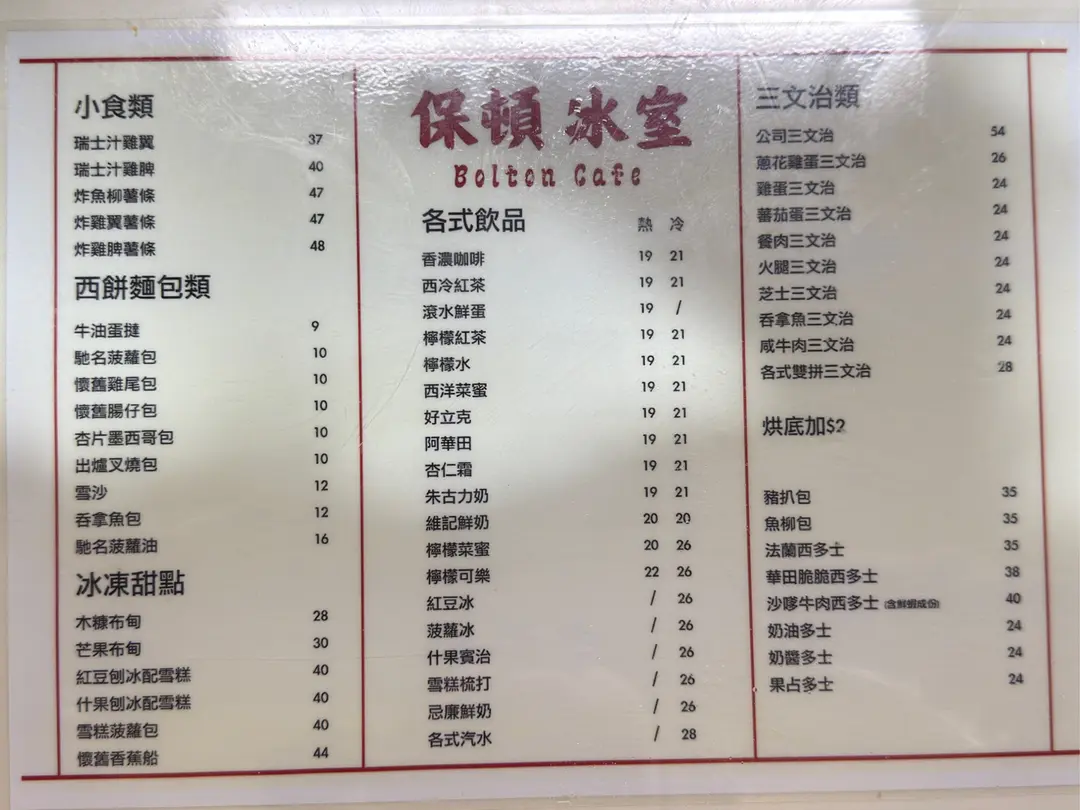 小食類
瑞士汁雞翼 37
瑞士汁雞脾 40
炸魚柳薯條 47
炸雞翼薯條 47
炸雞脾薯條 48
西餅麵包類
牛油蛋撻 9
馳名菠蘿包 10
懷舊雞尾包 10
懷舊腸仔包 10
杏片墨西哥包 10
出爐叉燒包 10
雪沙 12
吞拿魚包 12
馳名菠蘿油 16
冰凍甜點
木糠布甸 28
芒果布甸 30
紅豆刨冰配雪糕 40
什果刨冰配雪糕 40
雪糕菠蘿包 40
懷舊香蕉船 44
保頓冰室
Bolton Cafe
各式飲品 熱 冷
香濃咖啡 19 21
西冷紅茶 19 21
滾水鮮蛋 19 /
檸檬紅茶 19 21
檸檬水 19 21
西洋菜蜜 19 21
好立克 19 21
阿華田 19 21
杏仁霜 19 21
朱古力奶 19 21
維記鮮奶 20 20
檸檬菜蜜 20 26
檸檬可樂 22 26
紅豆冰 / 26
菠蘿冰 / 26
什果賓治 / 26
雪糕梳打 / 26
忌廉鮮奶 / 26
各式汽水 / 28
三文治類
公司三文治 54
蔥花雞蛋三文治 26
雞蛋三文治 24
蕃茄蛋三文治 24
餐肉三文治 24
火腿三文治 24
芝士三文治 24
吞拿魚三文治 24
咸牛肉三文治 24
各式雙拼三文治 28
烘底加$2
豬扒包 35
魚柳包 35
法蘭西多士 35
華田脆脆西多士 38
沙嗲牛肉西多士 (含鮮蝦成份) 40
奶油多士 24
奶醬多士 24
果占多士 24